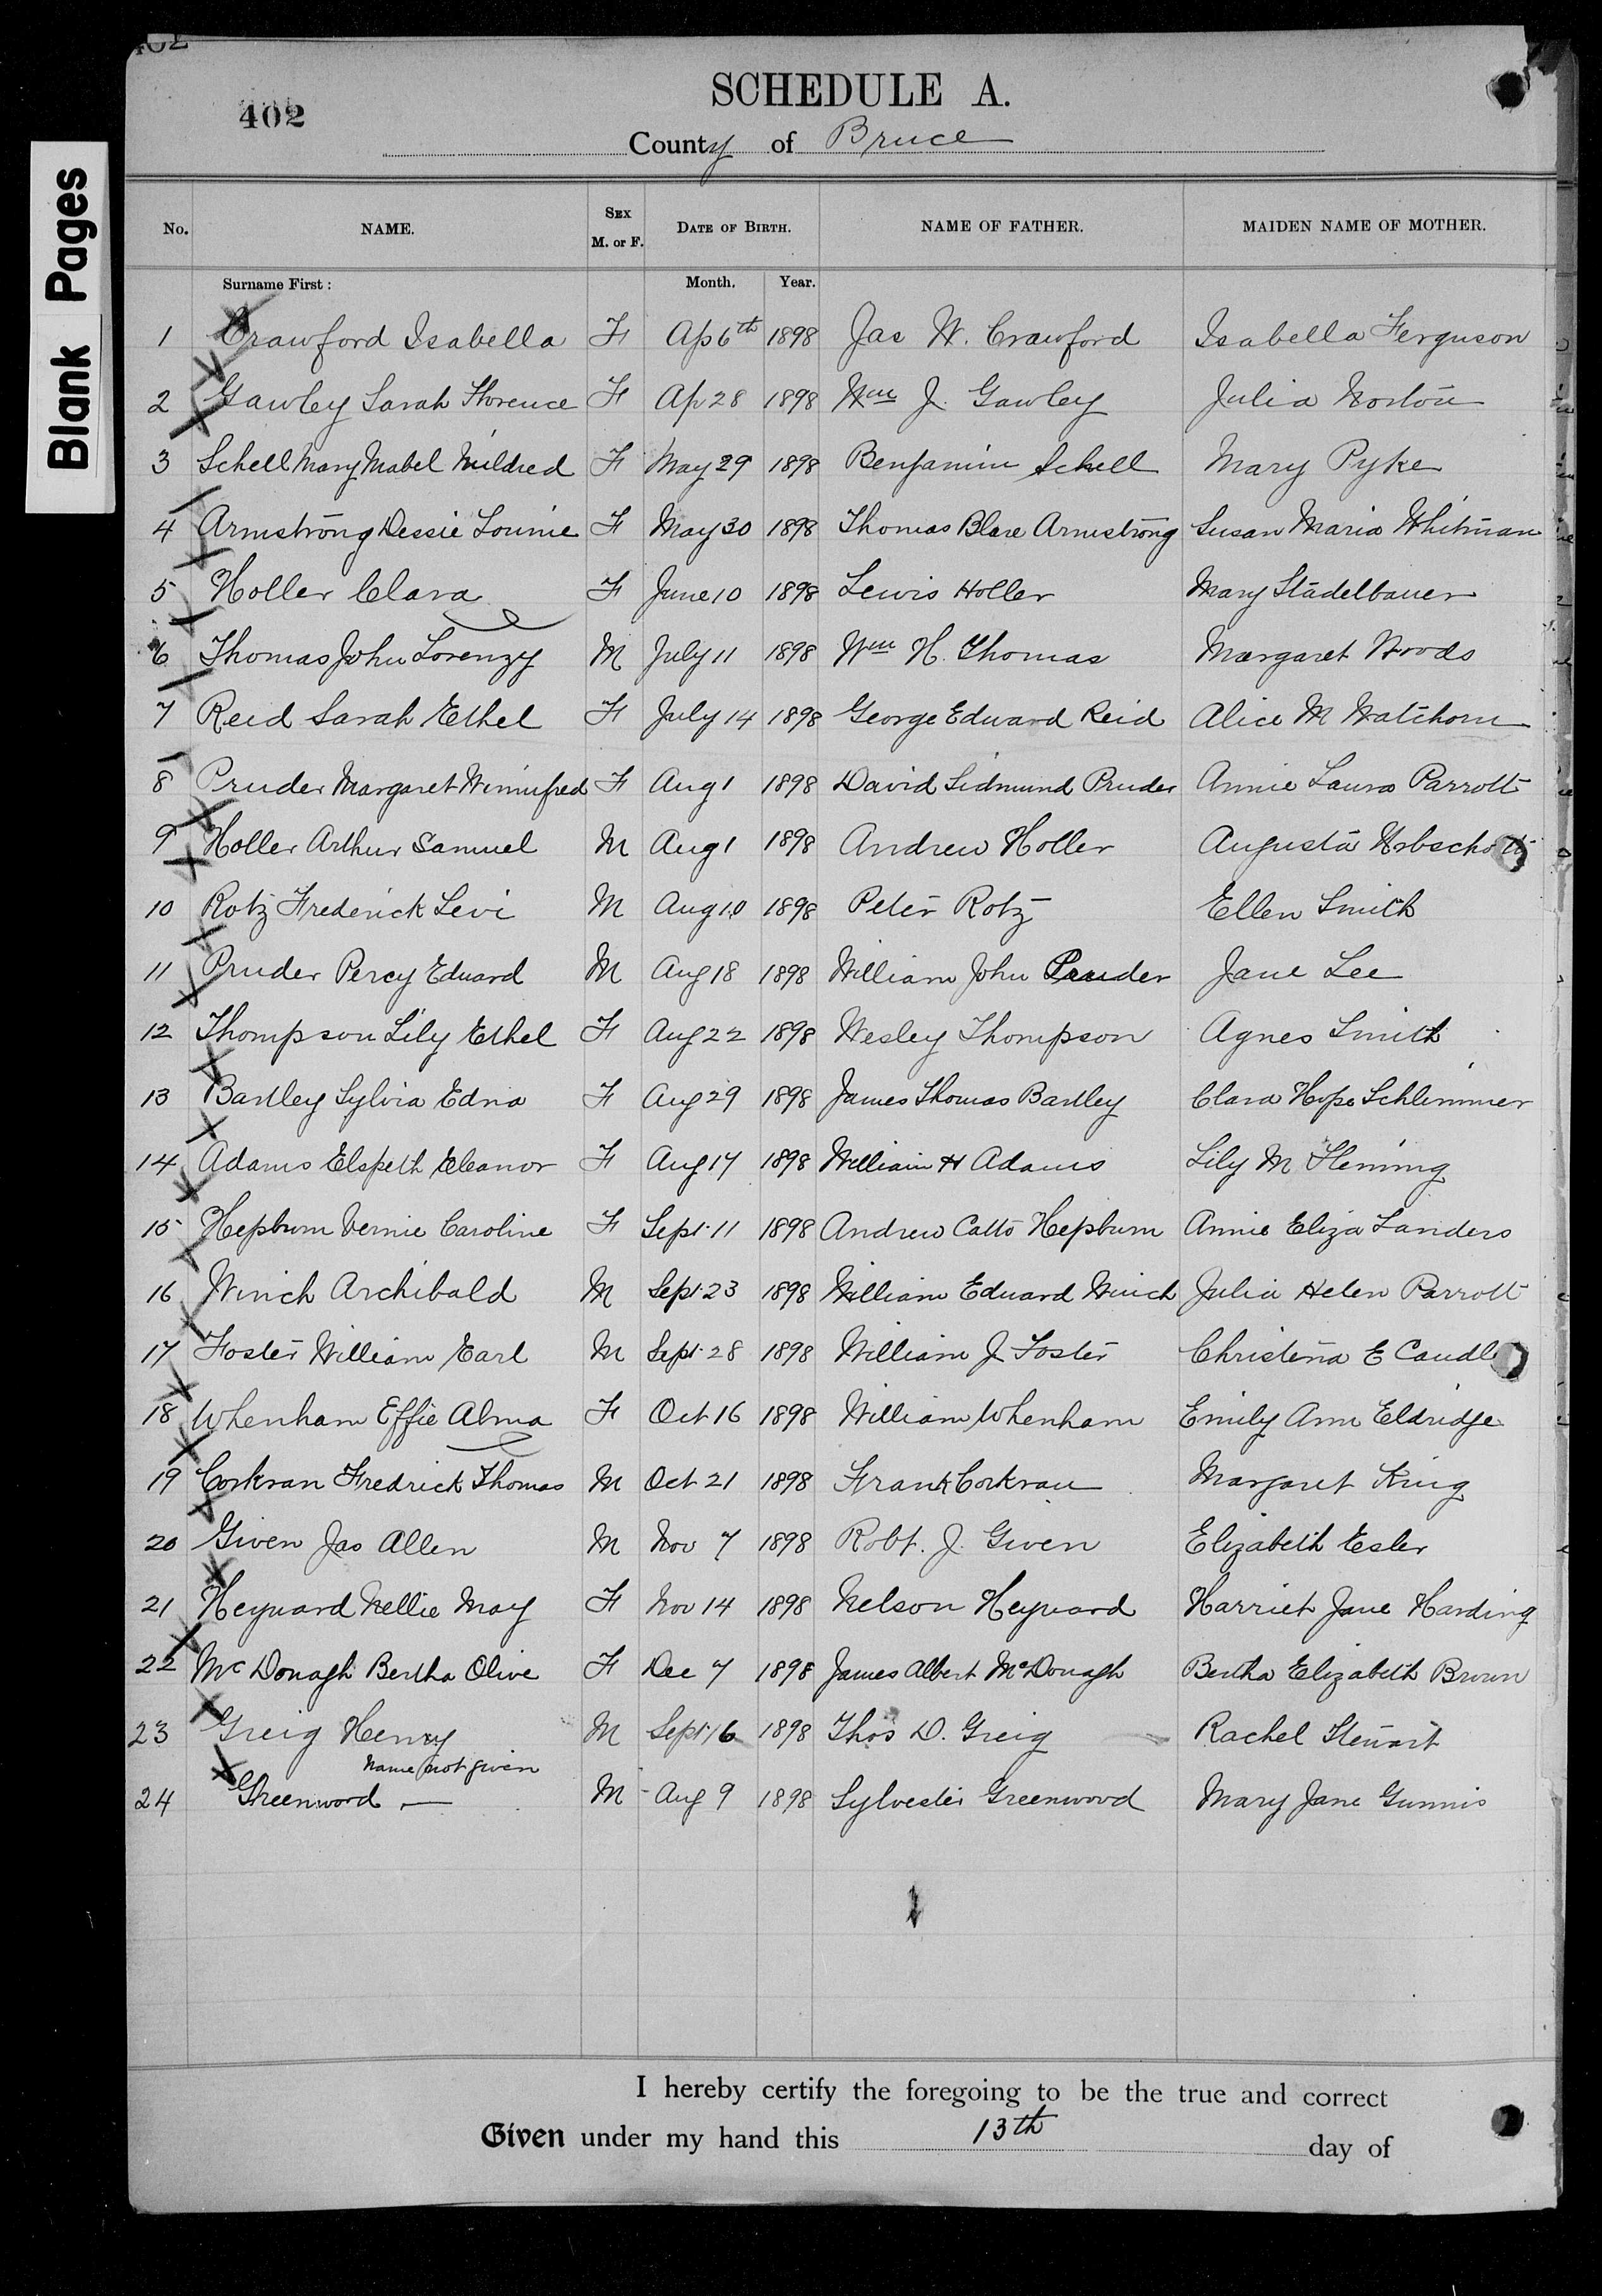 402
Blank Pages
402
SCHEDULE A.
County of Bruce
No. NAME. SEX M. or F. DATE OF BIRTH. NAME OF FATHER. MAIDEN NAME OF MOTHER.
Surname First: Month. Year.
1 Crawford Isabella F Ap 6th 1898 Jas W. Crawford Isabella Ferguson
2 Gawley Sarah Florence F Ap 28 1898 Wm J. Gawley Julia Norton
3 Schell Mary Mabel Mildred F May 29 1898 Benjamin Schell Mary Pyke
4 Armstrong Dessie Louine F May 30 1898 Thomas Blare Armstrong Susan Maria Whitman
5 Holler Clara F June 10 1898 Lewis Holler Mary Stadelbauer
6 Thomas John Lorenzy M July 11 1898 Wm H. Thomas Margaret Woods
7 Reid Sarah Ethel F July 14 1898 George Edward Reid Alice M Watchorn
8 Pruder Margaret Winnifred F Aug 1 1898 David Sidmund Pruder Annie Laura Parrott
9 Holler Arthur Samuel M Aug 1 1898 Andrew Holler Augusta
10 Rotz Frederick Levi M Aug 10 1898 Peter Rotz Ellen Smith
11 Pruder Percy Edward M Aug 18 1898 William John Pruder Jane Lee
12 Thompson Lily Ethel F Aug 22 1898 Wesley Thompson Agnes Smith
13 Bartley Sylvia Edna F Aug 29 1898 James Thomas Bartley Clara Hope Schlimmer
14 Adams Elspeth Eleanor F Aug 17 1898 William H Adams Lily M Fleming
15 Hepburn Vernie Caroline F Sept 11 1898 Andrew Catto Hepburn Annie Eliza Landers
16 Winch Archibald M Sept 23 1898 William Edward Winch Julia Helen Parrott
17 Foster William Earl M Sept 28 1898 William J Foster Christena E
18 Whenham Effie Alma F Oct 16 1898 William Whenham Emily Ann Eldridge
19 Corkran Fredrick Thomas M Oct 21 1898 Frank Corkran Margaret King
20 Given Jas Allen M Nov 7 1898 Robt. J. Given Elizabeth Esler
21 Heyward Nellie May F Nov 14 1898 Nelson Heyward Harriet Jane Harding
22 McDonagh Bertha Olive F Dec 7 1898 James Albert McDonagh Bertha Elizabeth Brown
23 Greig Henry M Sept 16 1898 Thos D. Greig Rachel Stewart
Name not given
24 Greenwood — M Aug 9 1898 Sylvester Greenwood Mary Jane Gunnis
I hereby certify the foregoing to be the true and correct
Given under my hand this 13th day of